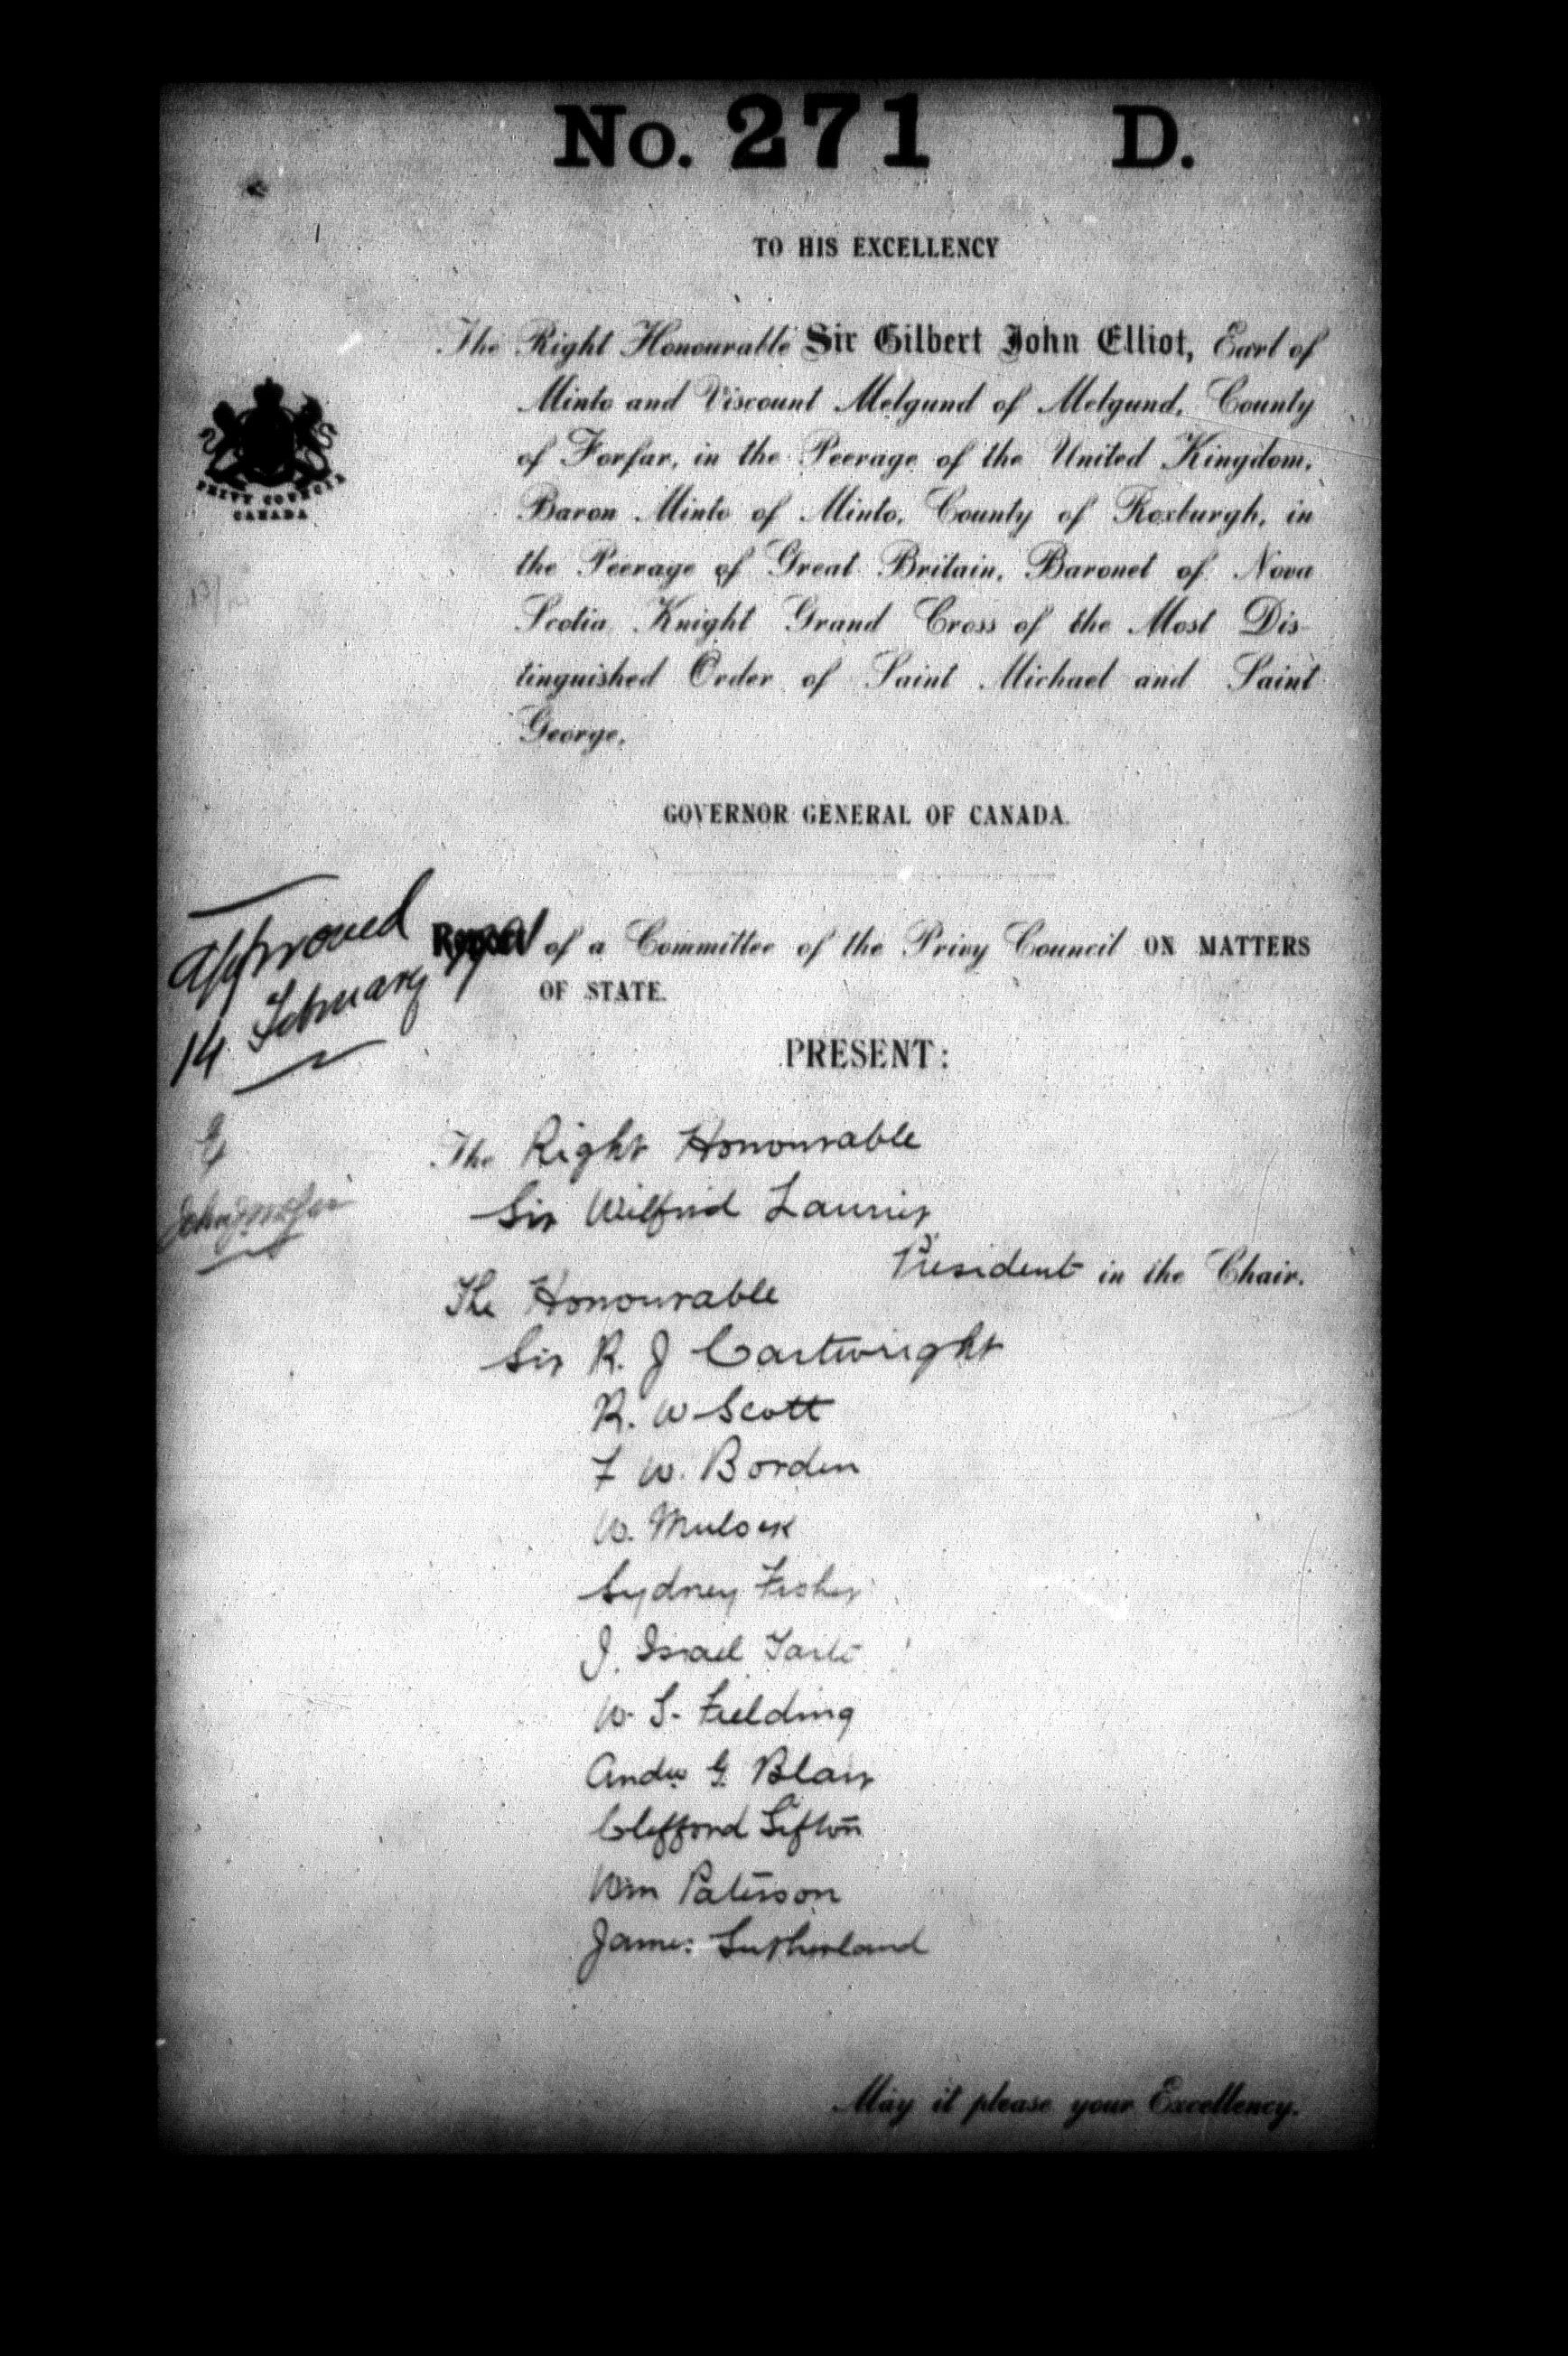 No. 271 D.
TO HIS EXCELLENCY
The Right Honourable Sir Gilbert John Elliot, Earl of
Minto and Viscount Melgund of Melgund, County
of Forfar, in the Peerage of the United Kingdom,
Baron Minto of Minto, County of Roxburgh, in
the Peerage of Great Britain, Baronet of Nova
Scotia, Knight Grand Cross of the Most Dis-
tinguished Order of Saint Michael and Saint
George,
PRIVY COUNCIL
CANADA
GOVERNOR GENERAL OF CANADA.
Approved
14 February
Report of a Committee of the Privy Council ON MATTERS
OF STATE.
PRESENT:
The Right Honourable
Sir Wilfrid Laurier
President in the Chair.
The Honourable
Sir R. J Cartwright
R. W Scott
F W. Borden
W. Mulock
Sydney Fisher
J. Israel Tarte
W. S. Fielding
Andw G. Blair
Clifford Sifton
Wm Paterson
James Sutherland
May it please your Excellency.